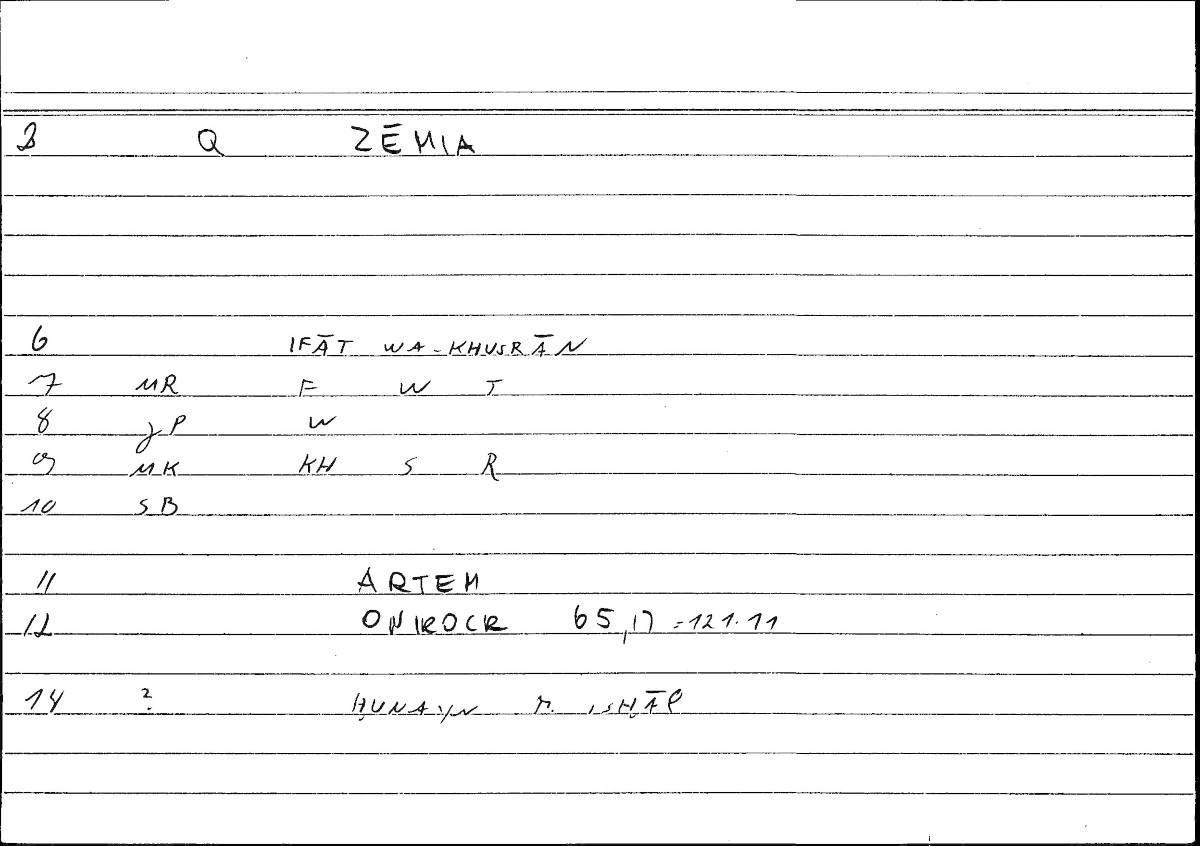 3 Q ZĒMIA
6 IFĀT WA-KHUSRĀN
7 MR F W T
8 JP W
9 MK KH S R
10 SB
11 ARTEM
12 ONIROCR 65,17 = 121.11
14 ? ḤUNAYN B. ISḤĀQ